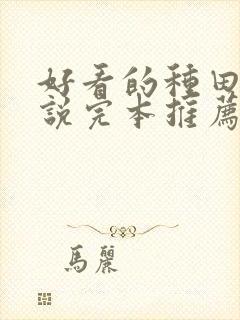 好看的種田
說完本推薦
馬麗